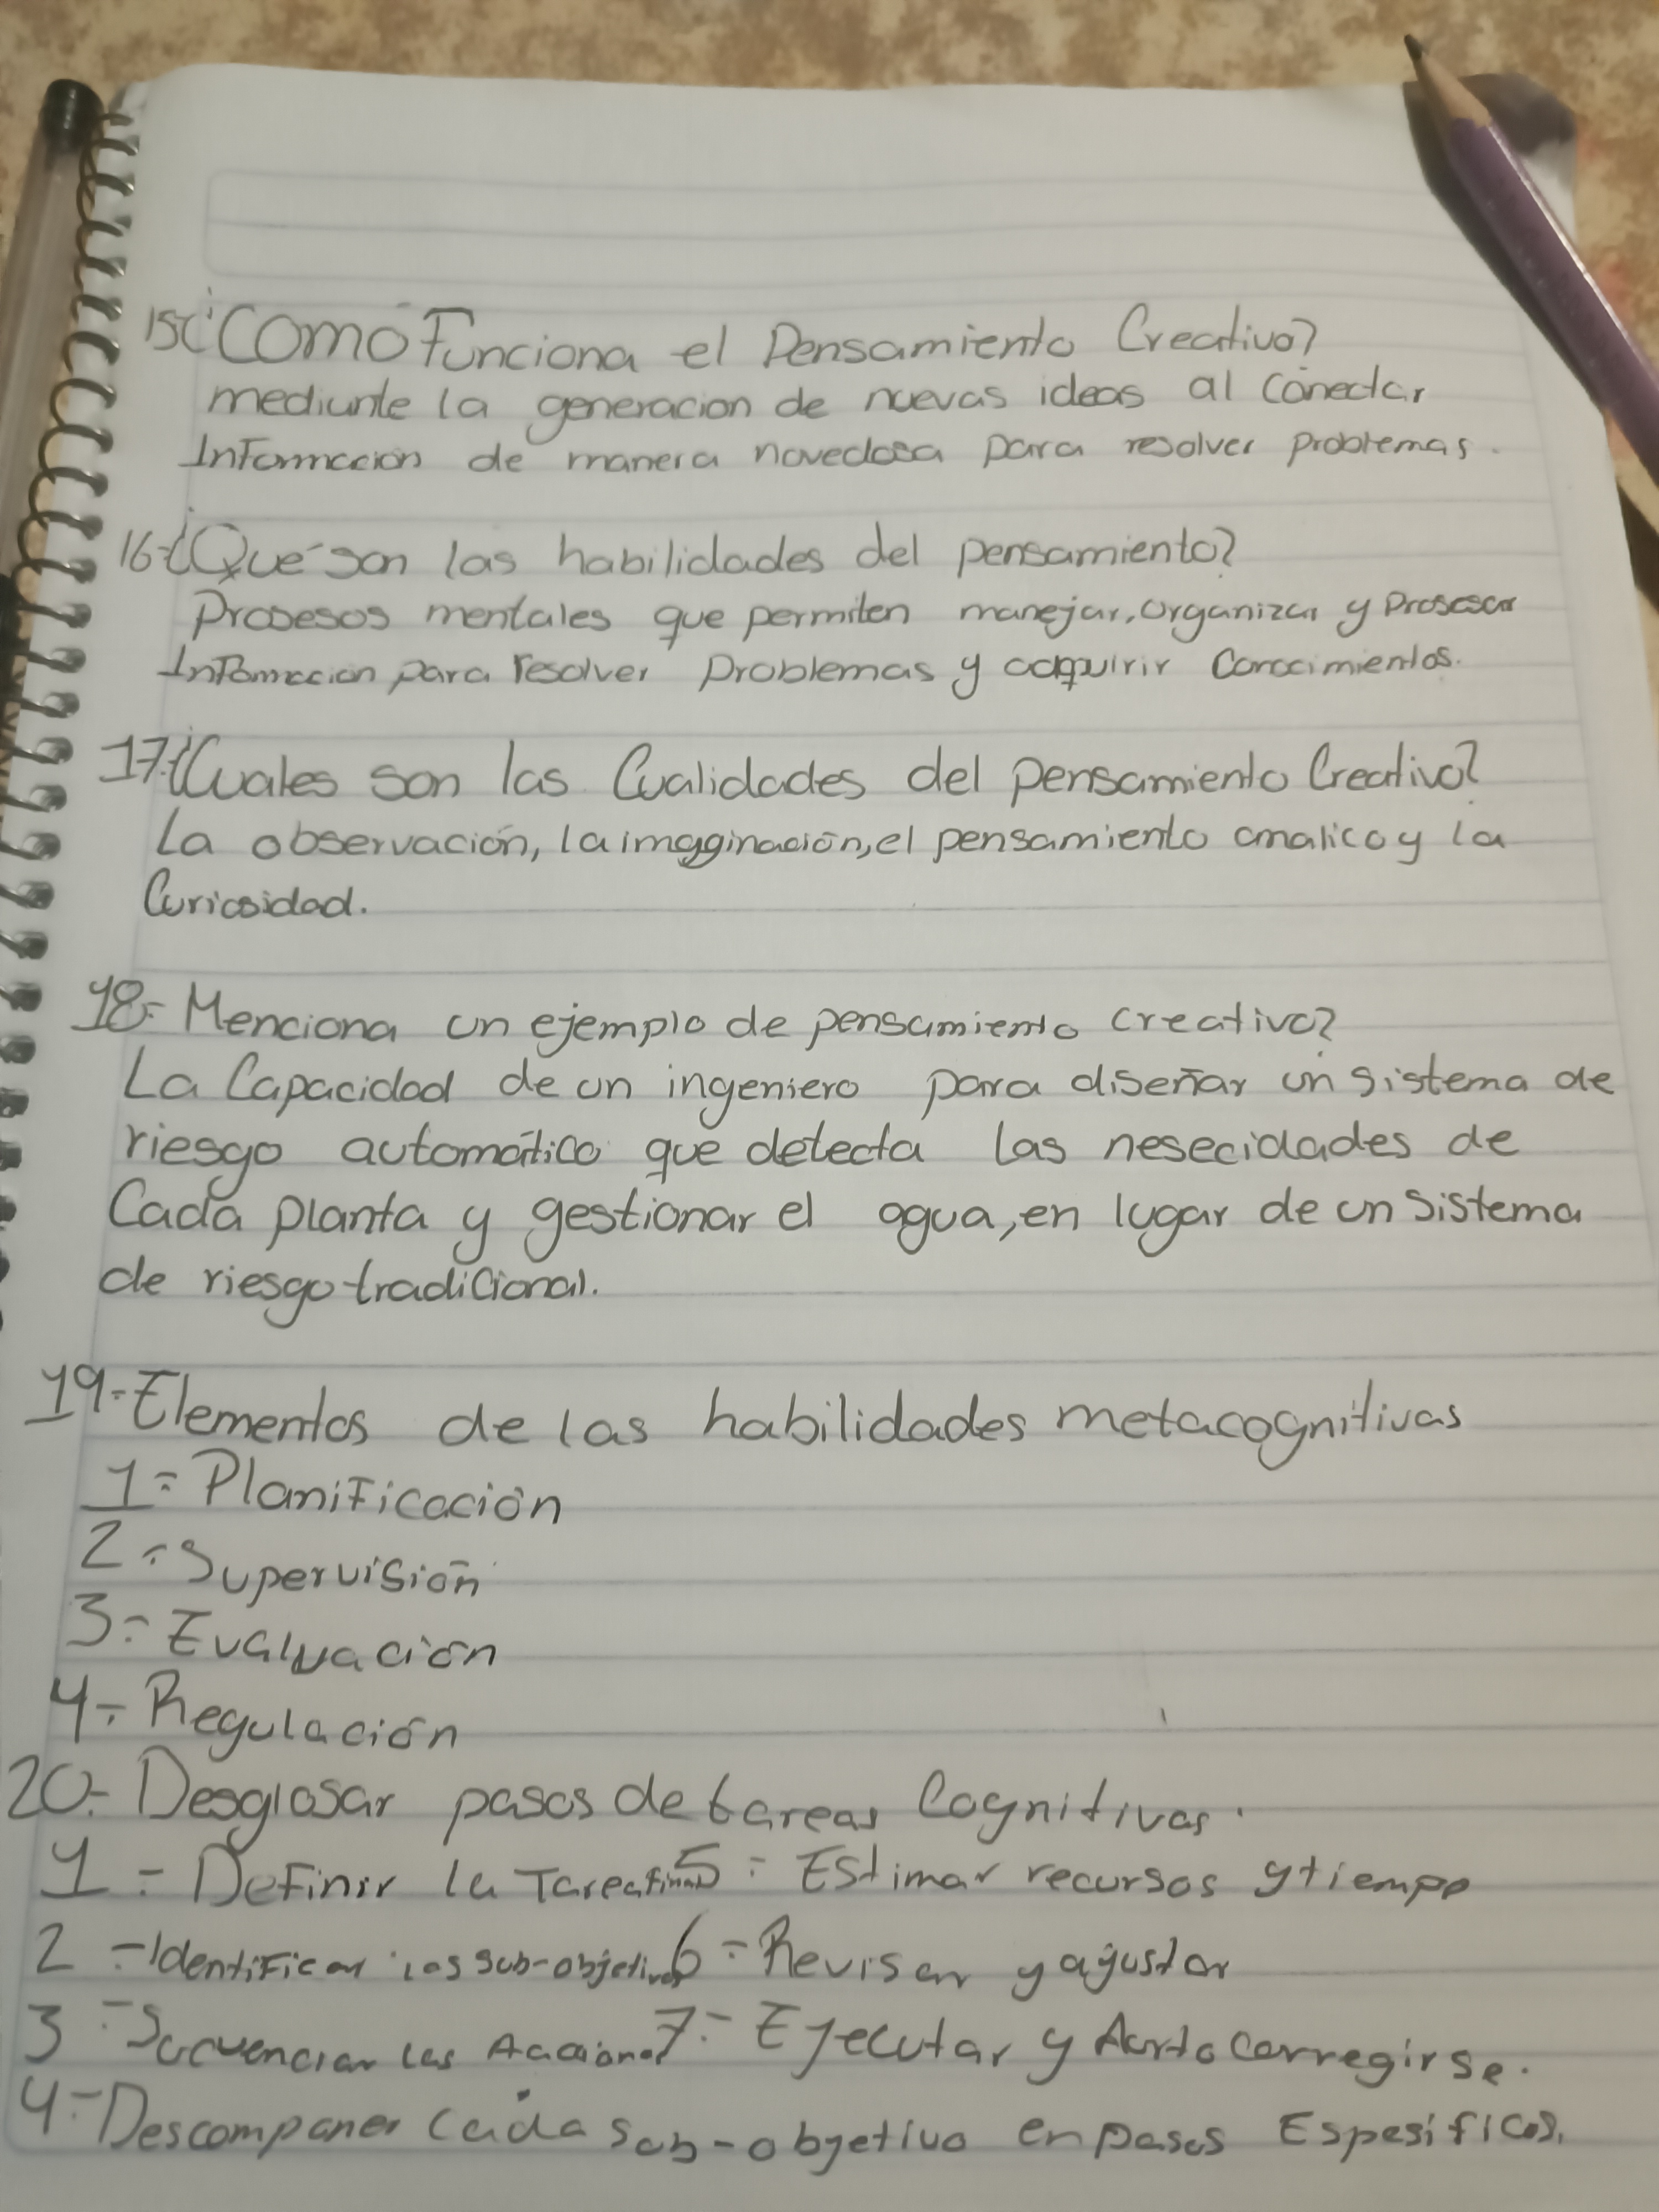 15¿Como Funciona el Pensamiento Creativo?
mediante la generacion de nuevas ideas al conectar
Información de manera novedosa para resolver problemas.
16-¿Qué son las habilidades del pensamiento?
Prosesos mentales que permiten manejar, organizar y prosesar
Informacion para resolver problemas y adquirir conocimientos.
17.¿Cuales son las Cualidades del pensamiento Creativo?
La observación, la imagginación, el pensamiento analico y la
Curiosidad.
18.- Menciona un ejemplo de pensamiento creativo?
La Capacidad de un ingeniero para diseñar un sistema de
riesgo automático que detecta las nesecidades de
Cada planta y gestionar el agua, en lugar de un sistema
de riesgo tradicional.
19.- Elementos de las habilidades metacognitivas
1.- Planificación
2.- Supervisión
3.- Evaluación
4.- Regulación
20.- Desglosar pasos de tareas Cognitivas.
1.- Definir la Tarea final 5.- Estimar recursos y tiempo
2.- Identificar los sub-objetivos 6.- Revisar y ajustar
3.- Secuenciar las Acciones 7.- Ejecutar y Autocorregirse.
4.- Descomponer cada sub-objetivo en pasos Espesificos.